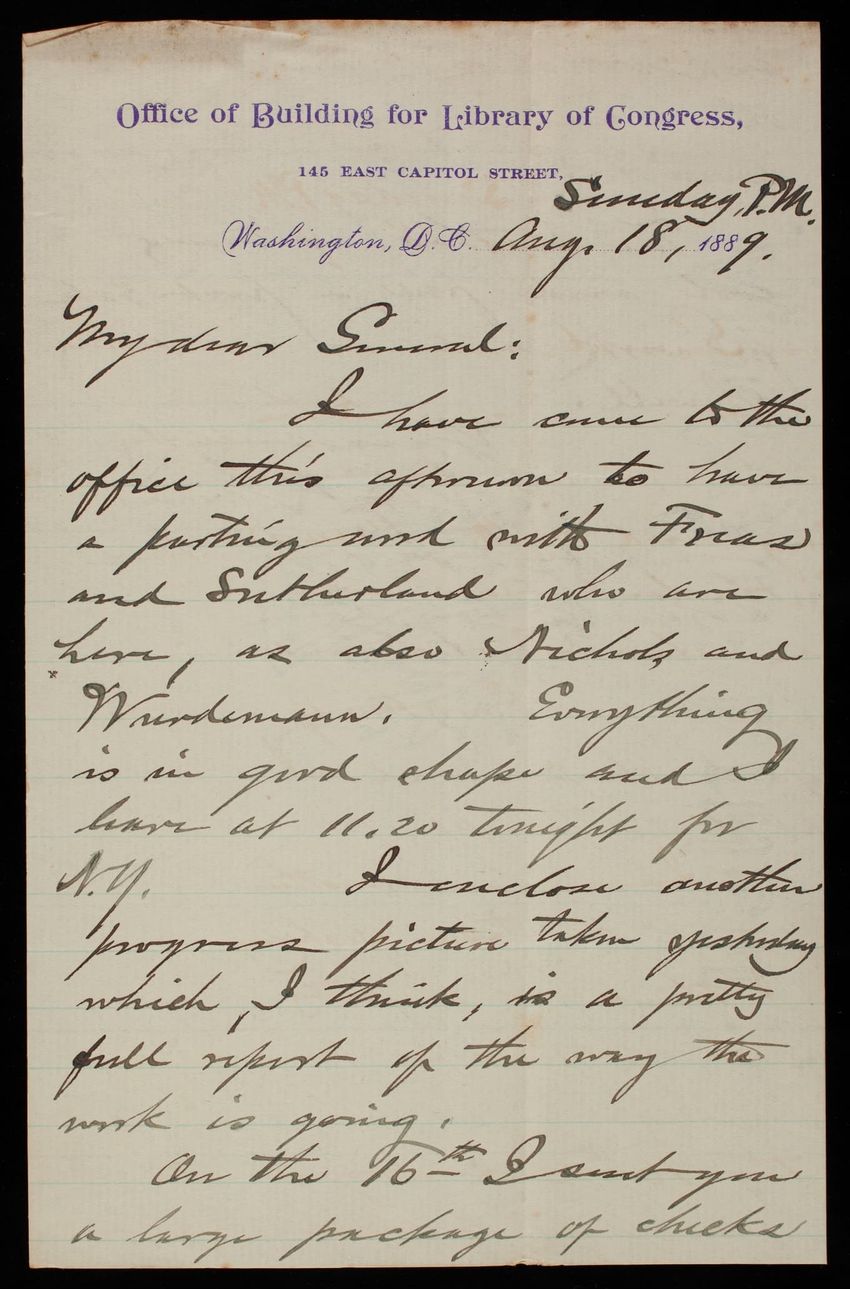 Office of Building for Library of Congress,
145 EAST CAPITOL STREET,
Sunday, P.M.
Washington, D.C. Aug. 18, 1889.
My dear General:
I have come to the
office this afternoon to have
a parting word with Freas
and Sutherland who are
here, as also Nichols and
Wurdemann. Everything
is in good shape and I
leave at 11.20 tonight for
N.Y. I enclose another
progress picture taken yesterday
which, I think, is a pretty
full report of the way the
work is going.
On the 16th I sent you
a large package of checks